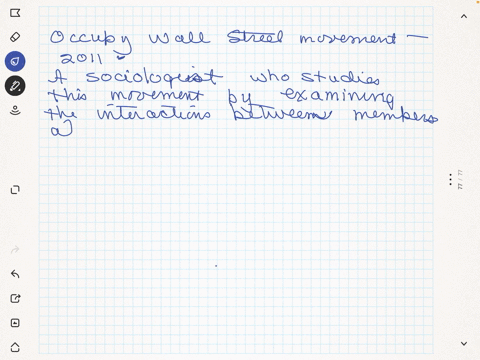 Occupy Wall Street movement —
2011
A sociologist who studies
this movement by examining
the interactions between members
a)
77 / 77